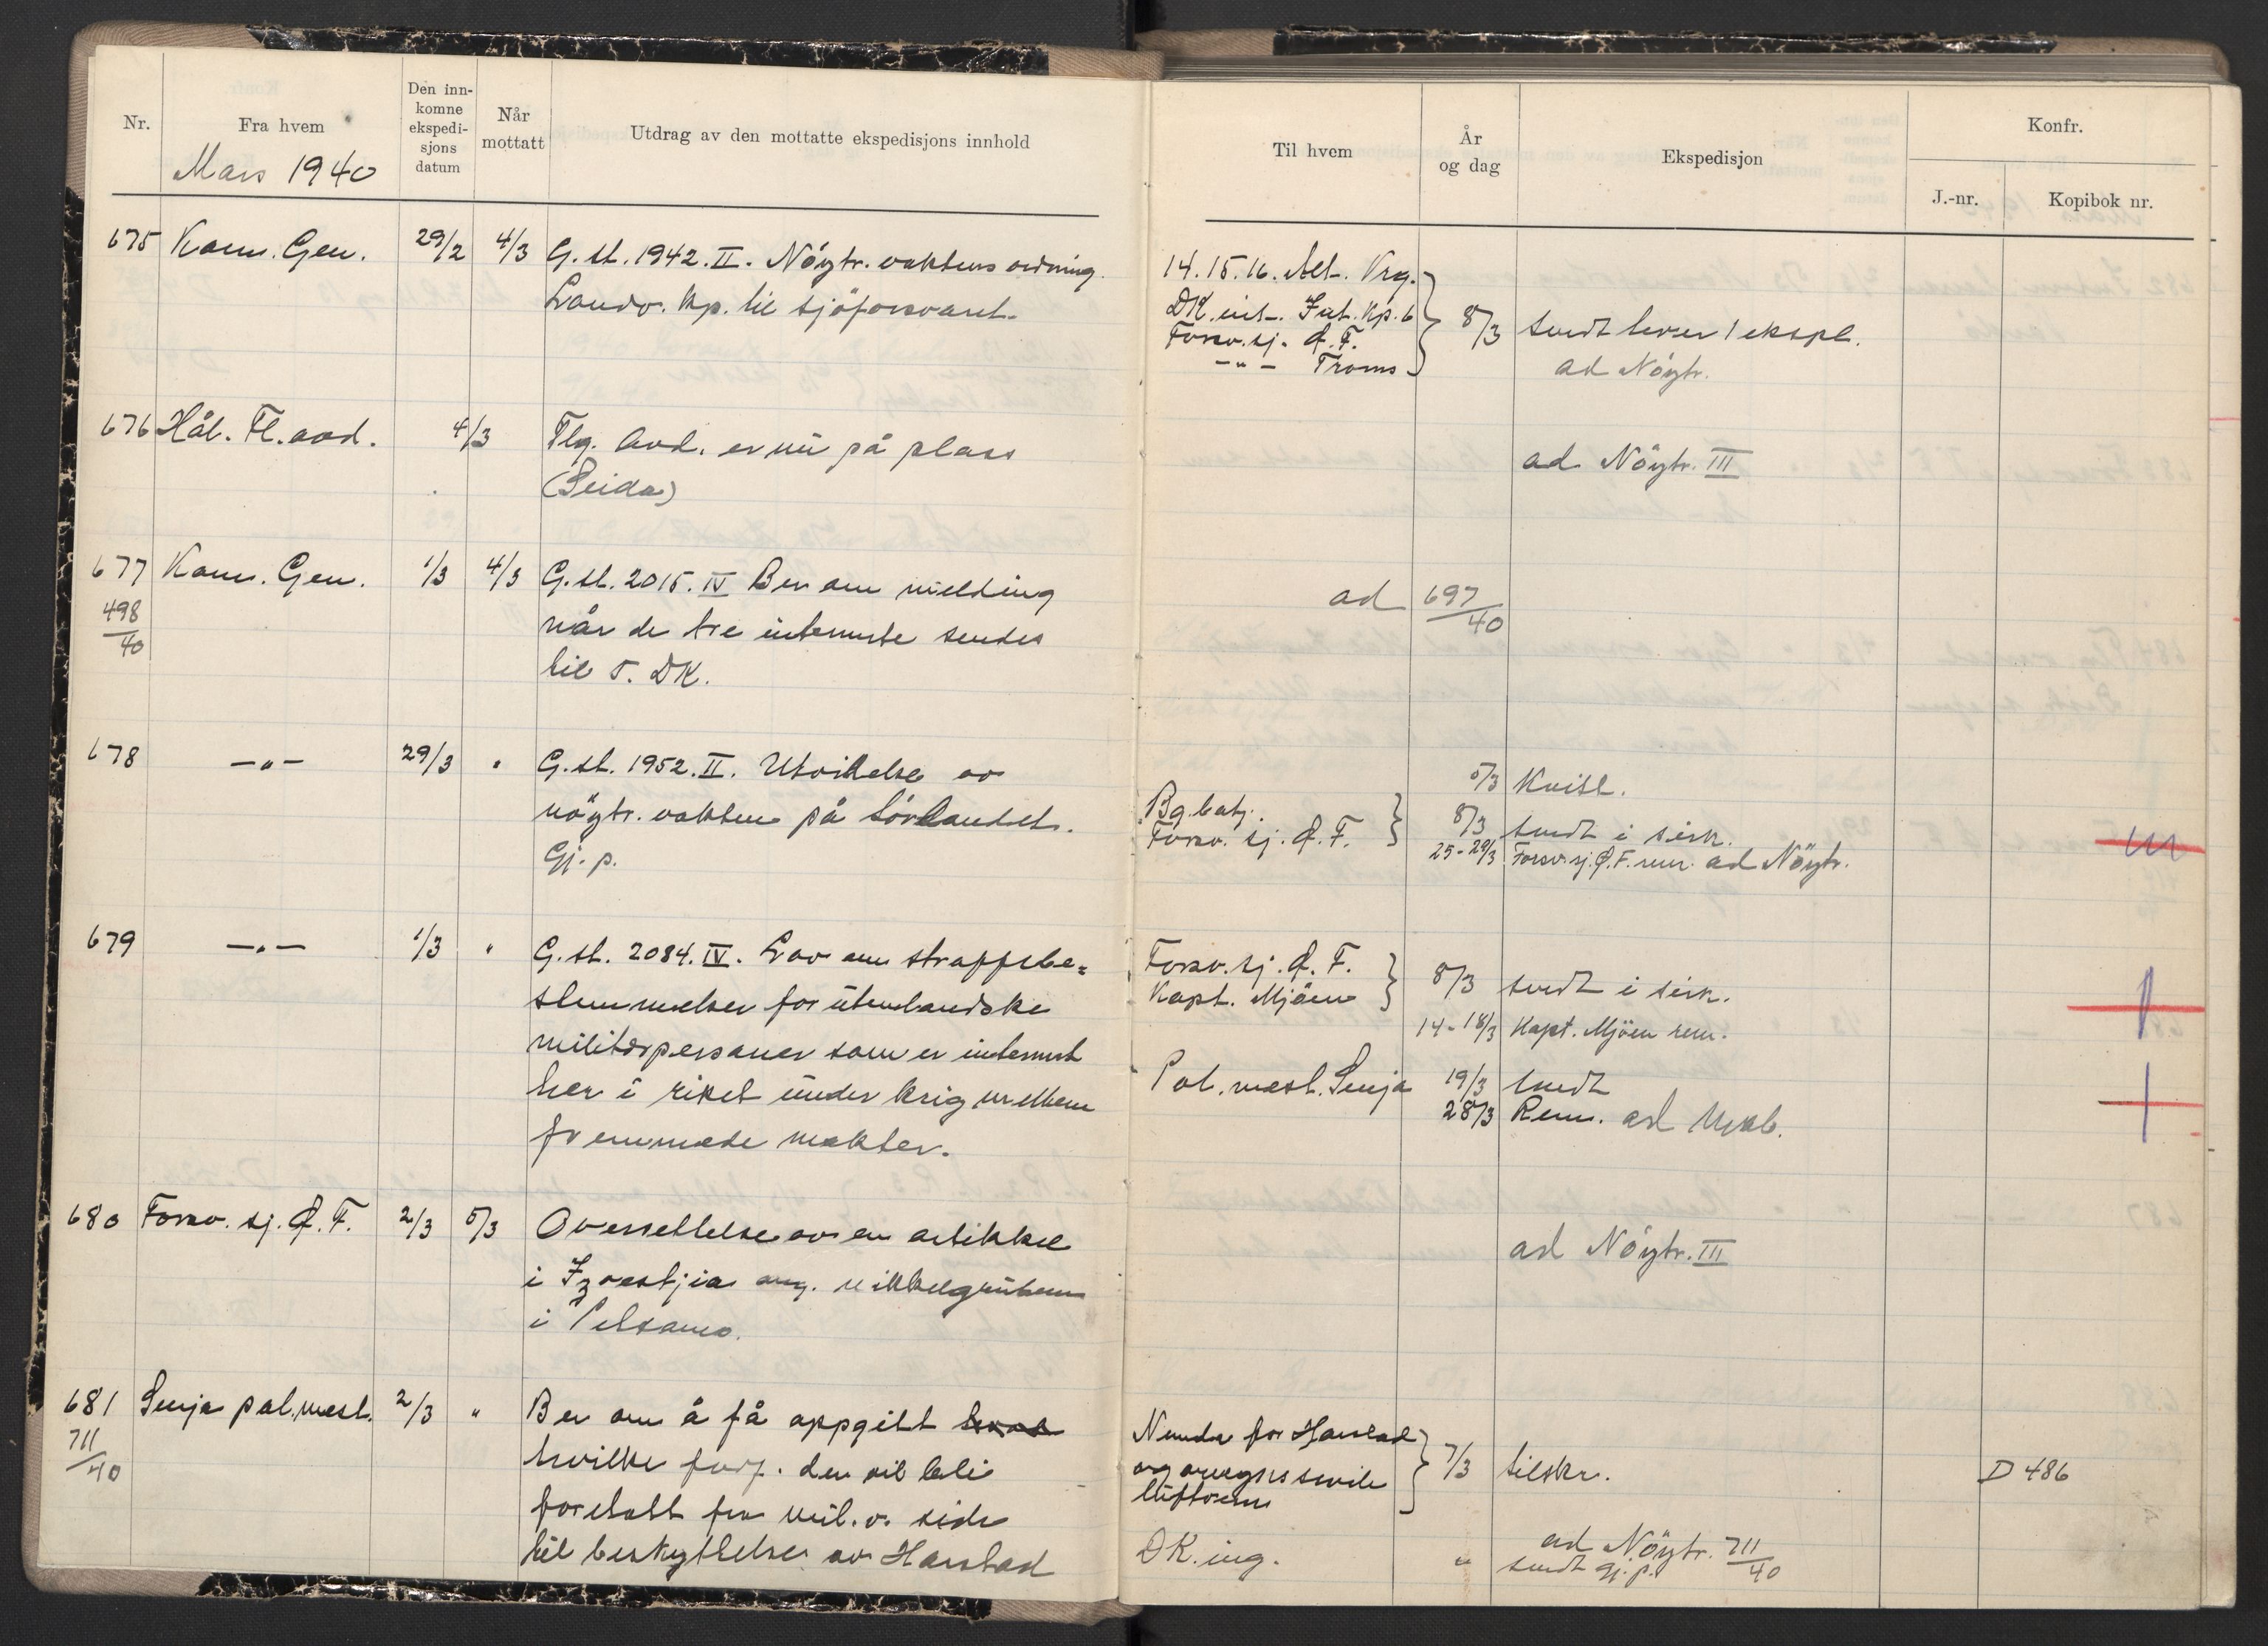 Nr.
Fra hvem
Den inn-
komne
ekspedi-
sjons
datum
Når
mottatt
Utdrag av den mottatte ekspedisjons innhold
Mars 1940
675 Kom. Gen. 29/2 4/3 G.st. 1942.II. Nöytr. vaktens ordning.
Landv. kp. til sjöforsvaret.
676 Hål. Fl. avd. 4/3 Tlg. Avd. er nu på plass
(Seida)
677 Kom. Gen. 1/3 4/3 G.st. 2015.IV Ber om melding
498/40 når de tre internerte sendes
til 5. DK.
678 —"— 29/3 " G.st. 1952.II. Utvidelse av
nöytr. vakten på Sörlandet.
Gj. p.
679 —"— 1/3 " G.st. 2084.IV. Lov om straffebe=
stemmelser for utenlandske
militærpersoner som er internert
her i riket under krig mellem
fremmede makter.
680 Forsv. sj. Ø. F. 2/3 5/3 Oversettelse av en artikkel
i Izvestjia ang. nikkelgrubene
i Petsamo.
681 Senja pol.mest. 2/3 " Ber om å få oppgitt
711/40 hvilke forf. der vil bli
foretatt fra mil. v. side
til beskyttelse av Harstad
Til hvem
År
og dag
Ekspedisjon
Konfr.
J.-nr.
Kopibok nr.
14. 15. 16. Alt. Vrg.
DK. int. Fat. Kp. 6
Forsv. sj. Ø. F. 8/3 sendt hver 1 ekspl.
—"— Troms ad Nöytr.
ad Nöytr. III
ad 697/40
5/3 Kvitt.
Bg. batj.
Forsv. sj. Ø. F. 8/3 sendt i sirk.
25-29/3 Forsv. sj. Ø. F. rem. ad Nöytr.
Forsv. sj. Ø. F.
Kapt. Mjöen 8/3 sendt i sirk.
14-18/3 Kapt. Mjöen rem.
Pol. mest. Senja 19/3 sendt
28/3 Rem. ad
ad Nöytr. III
Nemda for Harstad
og omegns sivile
luftvern 7/3 tilskr. D 486
ad Nöytr. 711/40
DK. ing. " sendt gj. p.